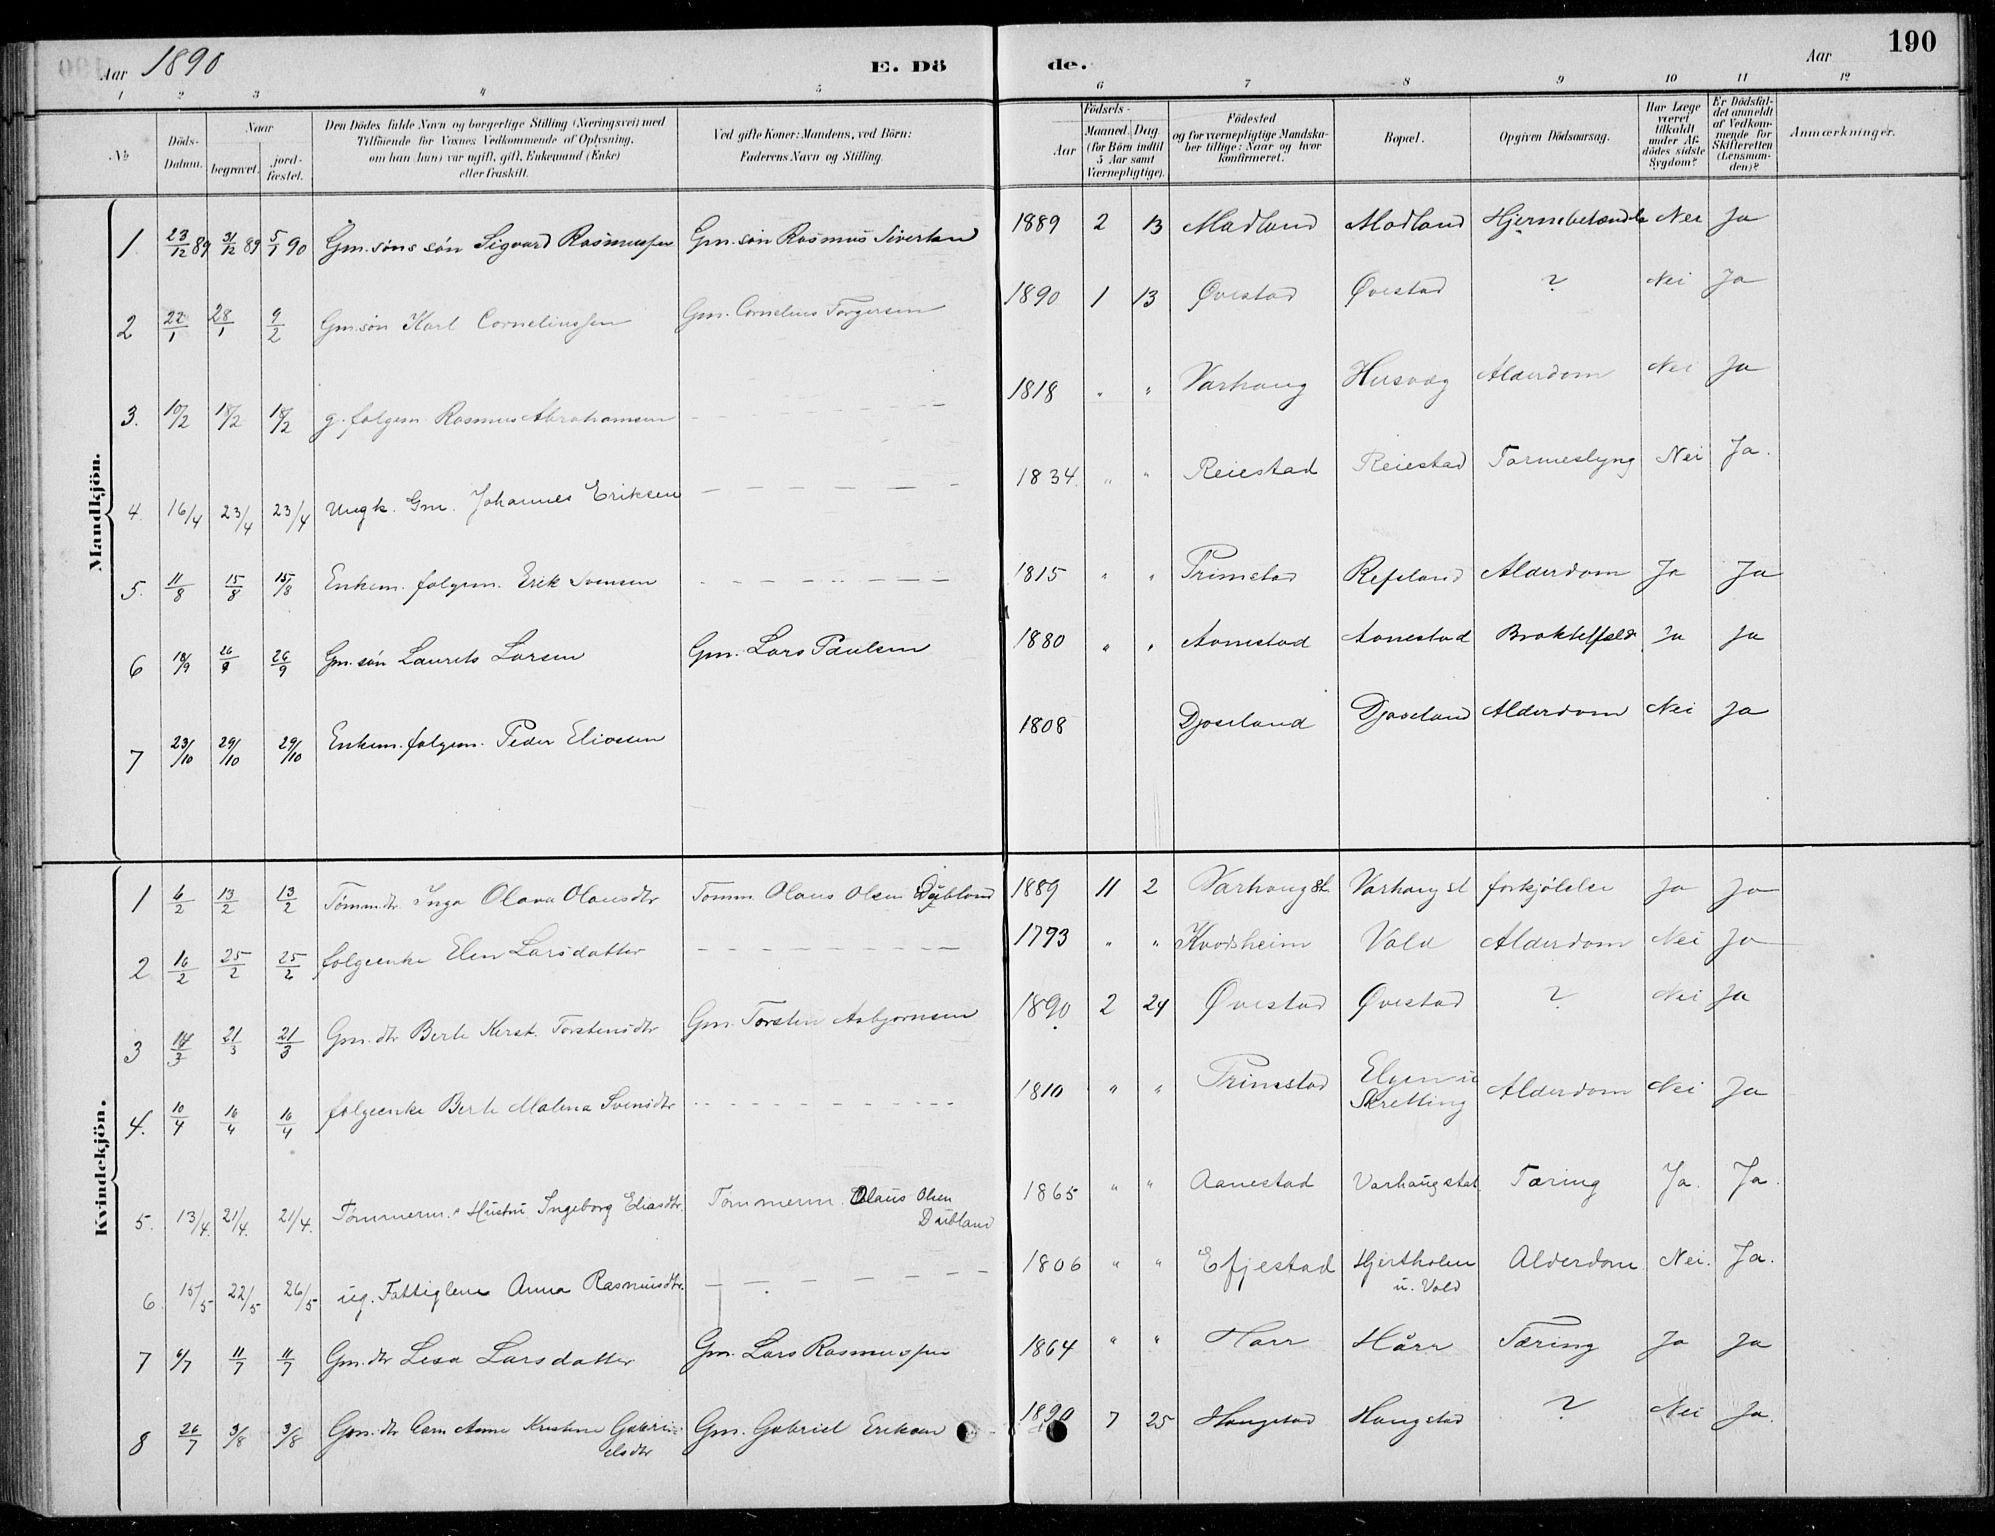 Aar 1890 E. Dö de. Aar 190
1 2 3 4 5 6 7 8 9 10 11 12
No Döds-Datum. Naar begravet. jord-fæstet. Den Dödes fulde Navn og borgerlige Stilling (Næringsvei) med Tilföiende for Voxnes Vedkommende af Oplysning, om han (hun) var ugift, gift, Enkemand (Enke) eller fraskilt. Ved gifte Koner: Mandens, ved Börn: Faderens Navn og Stilling. Födsels- Aar Maaned. Dag (for Börn indtil 5 Aar samt Værnepligtige). Födested og for værnepligtige Mandskaber tillige: Naar og hvor konfirmeret. Bopæl. Opgiven Dödsaarsag. Har Læge været tilkaldt under Afdödes sidste Sygdom? Er Dödsfaldet anmeldt af Vedkommende for Skifteretten (Lensmanden)? Anmærkninger.
Mandkjön.
1 23/12 89 31/12 89 5/1 90 Gm. söns sön Sigvard Rasmussen Gm. sön Rasmus Sivertsen 1889 2 13 Madland Madland Hjernebetændelse Nei Ja
2 22/1 28/1 9/2 Gm. sön Karl Corneliussen Gm. Cornelius Torgersen 1890 1 13 Øvestad Øvestad ? Nei Ja
3. 10/2 18/2 18/2 g. folgem. Rasmus Abrahamsen — — — 1818 " " Varhaug Husvæg Alderdom Nei Ja
4. 16/4 23/4 23/4 Ungk. Gm. Johannes Eriksen — — — 1834. " " Reiestad Reiestad Tarmeslyng Nei Ja.
5. 11/8 15/8 15/8 Enkem. folgem. Erik Svensen — — — 1815 " " Primstad Refsland Alderdom Ja Ja
6 18/9 26/9 26/9 Gm. sön Laurits Larsen Gm. Lars Paulsen 1880 " " Aanestad Aanestad Ja Ja
7 23/10 29/10 29/10 Enkem. folgem. Peder Eliassen 1808 Djoseland Djoseland Alderdom Nei Ja
Kvindekjön.
1 6/2 13/2 13/2 Tømm. dtr Inga Olava Olausdtr Tomm. Olaus Olsen Dubland 1889 11 2 Varhaug st. Varhaug st forkjølelse Ja Ja
2 16/2 25/2 25/2 folgeenke Elen Larsdatter — — — 1793 " " Kvodsheim Vold Alderdom Nei Ja
3 14/3 21/3 21/3 Gm. dtr Berte Kerst. Torstensdtr Gm. Torsten Asbjørnsen 1890 2 24 Øvestad Øvestad ? Nei Ja
4. 10/4 16/4 16/4 folgeenke Berte Malena Svensdtr — — — 1810 " " Primstad Elgen u Skretting Alderdom Nei Ja
5. 13/4. 21/4. 21/4. Tömmerm.s Hustru Ingeborg Eliasdtr. Tømmerm. Olaus Olsen Dubland 1865 " " Aanestad Varhaug stat. Tæring Ja. Ja.
6. 15/5 22/5 26/5 ug. Fattiglem Anna Rasmusdtr. — — — 1806 " " Efjestad Hjertholen u. Vold Alderdom. Nei. Ja.
7 6/7 11/7 11/7 Gm. dtr Lesa Larsdatter Gm. Lars Rasmussen 1864 " " Harr Hårr Tæring Ja Ja
8 26/7 3/8 3/8 Gm. dtr Anne Kristine Gabrielsdtr Gm. Gabriel Eriksen 1890 7 25 Haugstad Haugstad ? Nei Ja.